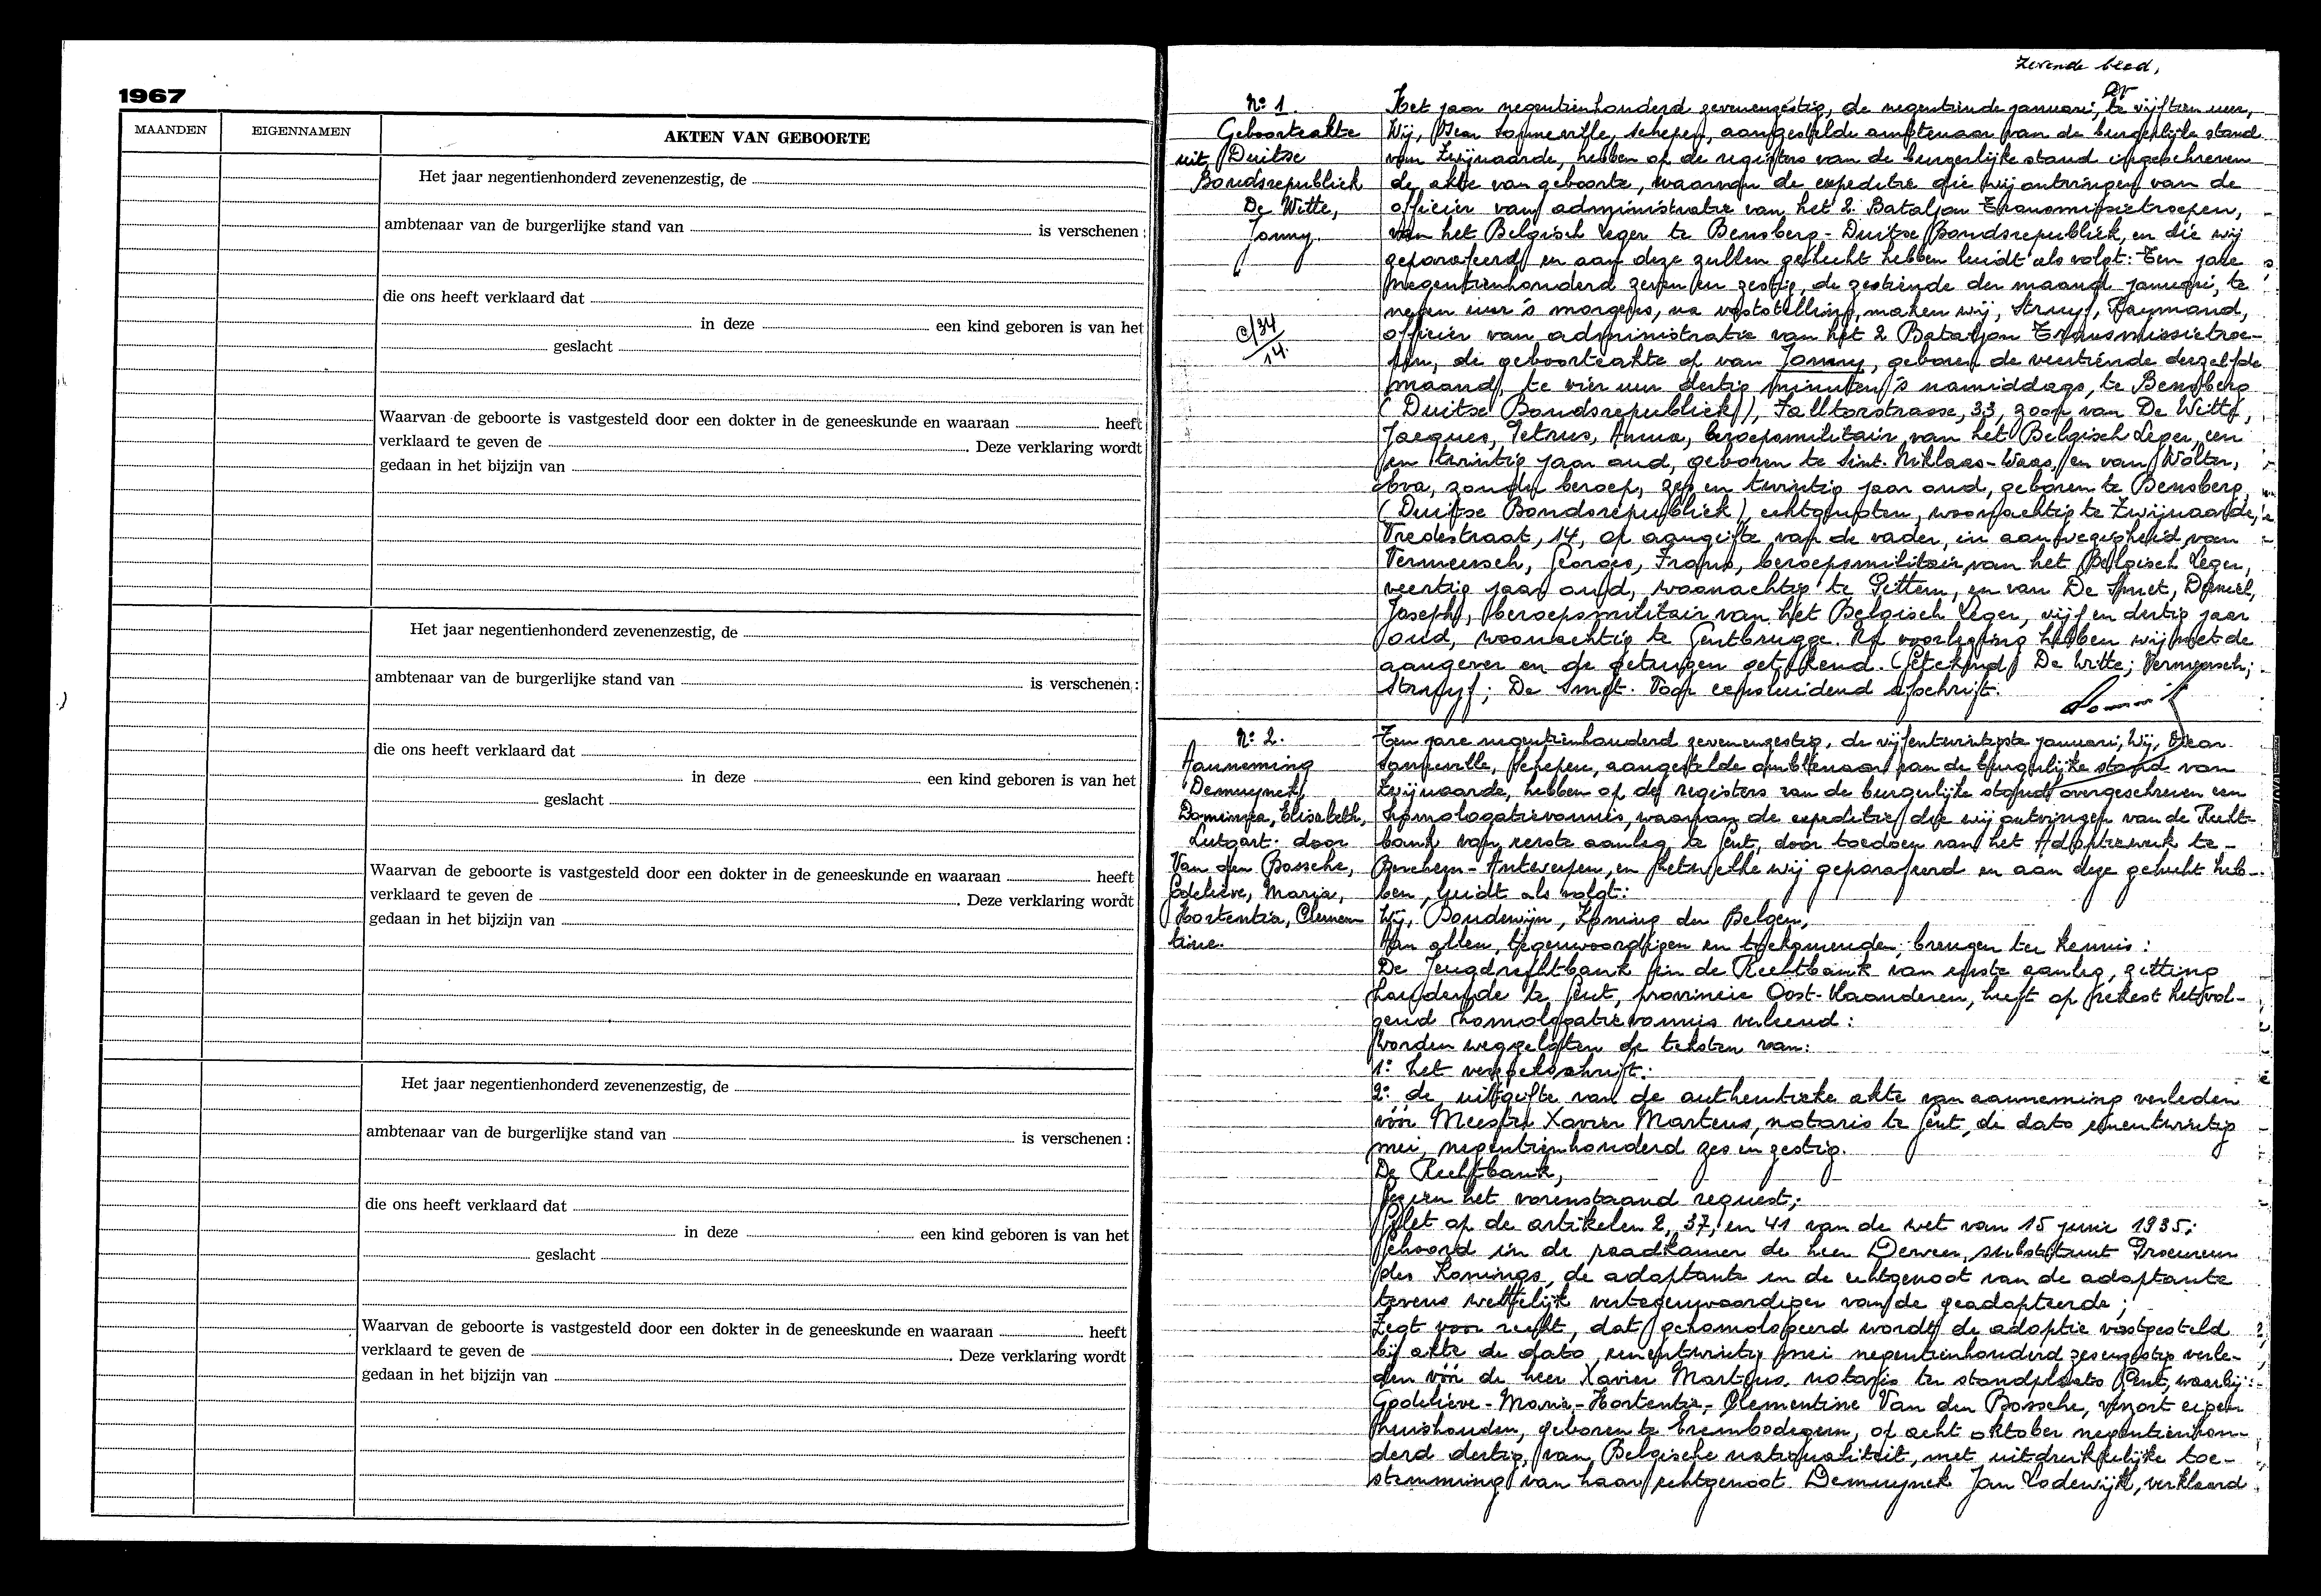 1967
MAANDEN EIGENNAMEN AKTEN VAN GEBOORTE
Het jaar negentienhonderd zevenenzestig, de
ambtenaar van de burgerlijke stand van is verschenen :
die ons heeft verklaard dat
in deze een kind geboren is van het
geslacht
Waarvan de geboorte is vastgesteld door een dokter in de geneeskunde en waaraan heeft
verklaard te geven de . Deze verklaring wordt
gedaan in het bijzijn van
Het jaar negentienhonderd zevenenzestig, de
ambtenaar van de burgerlijke stand van is verschenen :
die ons heeft verklaard dat
in deze een kind geboren is van het
geslacht
Waarvan de geboorte is vastgesteld door een dokter in de geneeskunde en waaraan heeft
verklaard te geven de . Deze verklaring wordt
gedaan in het bijzijn van
Het jaar negentienhonderd zevenenzestig, de
ambtenaar van de burgerlijke stand van is verschenen :
die ons heeft verklaard dat
in deze een kind geboren is van het
geslacht
Waarvan de geboorte is vastgesteld door een dokter in de geneeskunde en waaraan heeft
verklaard te geven de . Deze verklaring wordt
gedaan in het bijzijn van
Zevende blad,
N° 1.
Geboorteakte
uit Duitse
Bondsrepubliek
De Witte,
Jonny.
C/34
14.
Het jaar negentienhonderd zevenenzestig, de negentiende januari, te vijftien uur,
Wij, Sonneville, schepen, aangestelde ambtenaar van de burgerlijke stand
van Zwijnaarde, hebben op de registers van de burgerlijke stand ingeschreven
de akte van geboorte, waarvan de expeditie die wij ontvingen van de
officier van administratie van het 2. Bataljon Transmissietroepen,
van het Belgisch Leger te Bensberg - Duitse Bondsrepubliek, en die wij
geparafeerd en aan deze zullen gehecht hebben luidt als volgt: Ten jare
negentienhonderd zeven en zestig, de zestiende der maand januari, te
negen uur 's morgens, na vaststelling, maken wij, Struyf, Raymond,
officier van administratie van het 2 Bataljon Transmissietroe-
pen, de geboorteakte op van Jonny, geboren de veertiende derzelfde
maand, te vier uur dertig minuten 's namiddags, te Bensberg
(Duitse Bondsrepubliek), Falltorstrasse, 33, zoon van De Witte,
Jacques, Petrus, Anna, beroepsmilitair van het Belgisch Leger, een
en twintig jaar oud, geboren te Sint-Niklaas-Waas, en van Wolter,
Eva, zonder beroep, zes en twintig jaar oud, geboren te Bensberg,
(Duitse Bondsrepubliek), echtgenoten, woonachtig te Zwijnaarde,
Vredestraat, 14, op aangifte van de vader, in aanwezigheid van
Vermeersch, Georges, Frans, beroepsmilitair van het Belgisch Leger,
veertig jaar oud, woonachtig te Pittem, en van De Smet, Daniël,
Joseph, beroepsmilitair van het Belgisch Leger, vijf en dertig jaar
oud, woonachtig te Gentbrugge. Na voorlezing hebben wij met de
aangever en de getuigen getekend. (Getekend) De Witte; Vermeersch;
Struyf; De Smet. Voor eensluidend afschrift.
N° 2.
Aanneming
Demuynck,
Dominica, Elisabeth,
Lutgart: door
Van den Bossche,
Godelieve, Maria,
Hortentia, Clemen
tine.
Ten jare negentienhonderd zevenenzestig, de vijfentwintigste januari, Wij,
Sonneville, schepen, aangestelde ambtenaar van de burgerlijke stand van
Zwijnaarde, hebben op de registers van de burgerlijke stand overgeschreven een
homologatievonnis, waarvan de expeditie die wij ontvingen van de Recht-
bank van eerste aanleg te Gent, door toedoen van het Adoptiewerk te -
Berchem - Antwerpen, en hetwelke wij geparafeerd en aan deze gehecht heb-
ben, luidt als volgt:
Wij, Boudewijn, Koning der Belgen,
Aan allen, tegenwoordigen en toekomenden, brengen ter kennis:
De Jeugdrechtbank in de Rechtbank van eerste aanleg, zitting
houdende te Gent, provincie Oost-Vlaanderen, heeft op rekest het vol-
gend homologatievonnis verleend:
Worden weggelaten de teksten van:
1° het verzoekschrift.
2° de uitgifte van de authentieke akte van aanneming verleden
vóór Meester Xavier Martens, notaris te Gent, de dato eenentwintig
mei, negentienhonderd zes en zestig.
De Rechtbank,
Gezien het vorenstaand request;
Gelet op de artikelen 2, 37, en 41 van de wet van 15 junie 1935;
Gehoord in de raadkamer de heer Derveer, substituut Procureur
des Konings, de adoptante en de echtgenoot van de adoptante
tevens wettelijk vertegenwoordiger van de geadopteerde;
Zegt voor recht, dat gehomologeerd wordt de adoptie vastgesteld
bij akte de dato eenentwintig mei negentienhonderd zesenzestig verle-
den vóór de heer Xavier Martens, notaris ter standplaats Gent, waarbij:
Godelieve - Maria - Hortentia - Clementine Van den Bossche, verzort eigen
huishouden, geboren te Erembodegem, op acht oktober negentienhon-
derd dertig, van Belgische nationaliteit, met uitdrukkelijke toe-
stemming van haar echtgenoot Demuynck Jan Lodewijk, verklaard